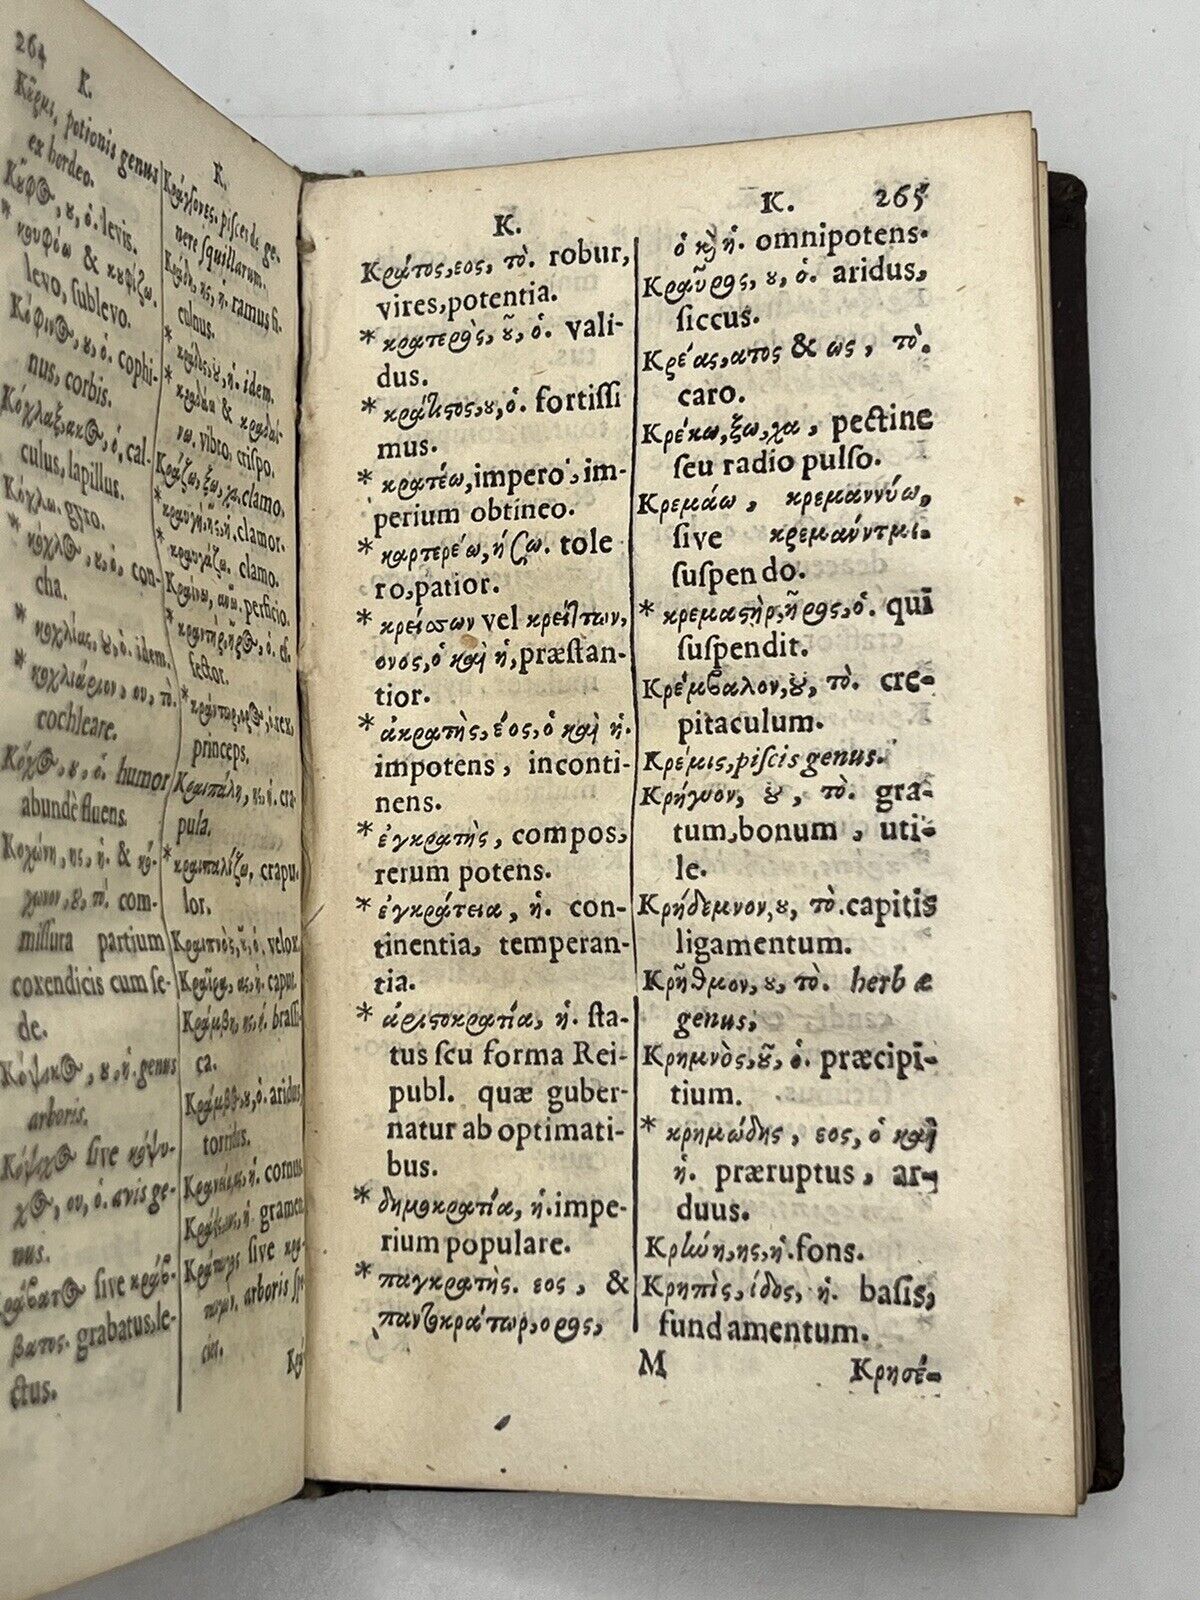 264
K.
potionis genus
ex hordeo.
ȣ, ὁ. levis.
* κȣφέω & κȣφίζω.
levo, sublevo.
Κόφιν⊙, ȣ, ὁ. cophi-
nus, corbis.
Κόχλαξ, ακ⊙, ὁ. cal-
culus, lapillus.
gyro.
con-
cha.
* κοχλίας, ȣ, ὁ. idem.
* κοχλιάριον, ου, τὸ.
cochleare.
ȣ, ὁ. humor
abundè fluens.
Κοχώνη, ης, ἡ. &
com-
missura partium
coxendicis cum se-
de.
ȣ, ἡ. genus
arboris.
sive
ου, ὁ. avis ge-
nus.
sive
βατος. grabatus, le-
ctus.
K.
piscis de ge-
nere squillarum.
Κράδη, ης, ἡ. ramus fi-
culnus.
idem.
&
vibro, crispo.
Κράζω, ξω, χα, clamo.
* κραυγὴ, ῆς, ἡ. clamor.
* κραυγάζω. clamo.
perficio.
* κραντὴρ, ῆρ⊙, ὁ. ef-
fector.
rex,
princeps.
Κραιπάλη, ης, ἡ. cra-
pula.
* κραιπαλίζω, crapu-
lor.
Κραιπνὸς, ȣ̃, ὁ. velox.
caput.
Κράμβη, ης, ἡ. brassi-
ca.
ȣ, ὁ. aridus,
torridus.
cornus.
gramen
sive
arboris
K. 265
K.
Κράτος, εος, τὸ. robur,
vires, potentia.
* κρατερὸς, ȣ̃, ὁ. vali-
dus.
* κράτιςος, ȣ, ὁ. fortissi
mus.
* κρατέω, impero, im-
perium obtineo.
* καρτερέω, ήσω. tole
ro, patior.
* κρείσσων vel κρείττων,
ονος, ὁ καὶ ἡ, præstan-
tior.
* ἀκρατὴς, έος, ὁ καὶ ἡ.
impotens, inconti-
nens.
* ἐγκρατὴς, compos,
rerum potens.
* ἐγκράτεια, ἡ. con-
tinentia, temperan-
tia.
* ἀριςοκρατία, ἡ. sta-
tus seu forma Rei-
publ. quæ guber-
natur ab optimati-
bus.
* δημοκρατία, ἡ. impe-
rium populare.
* παγκρατὴς. εος, &
παντοκράτωρ, ορος,
ὁ καὶ ἡ. omnipotens.
Κραῦρος, ȣ, ὁ. aridus,
siccus.
Κρέας, ατος & ως, τὸ.
caro.
Κρέκω, ξω, χα, pectine
seu radio pulso.
Κρεμάω, κρεμαννύω,
sive κρεμαύνημι.
suspendo.
* κρεμαςὴρ, ῆρος, ὁ. qui
suspendit.
Κρέμβαλον, ȣ, τὸ. cre-
pitaculum.
Κρέμις, piscis genus.
Κρήγυον, ȣ, τὸ. gra-
tum, bonum, uti-
le.
Κρήδεμνον, ȣ, τὸ. capitis
ligamentum.
Κρῆθμον, ȣ, τὸ. herbæ
genus,
Κρημνὸς, ȣ̃, ὁ. præcipi-
tium.
* κρημώδης, εος, ὁ καὶ
ἡ. præruptus, ar-
duus.
Κρήνη, ης, ἡ. fons.
Κρηπὶς, ίδος, ἡ. basis,
fundamentum.
M Κρησέ-